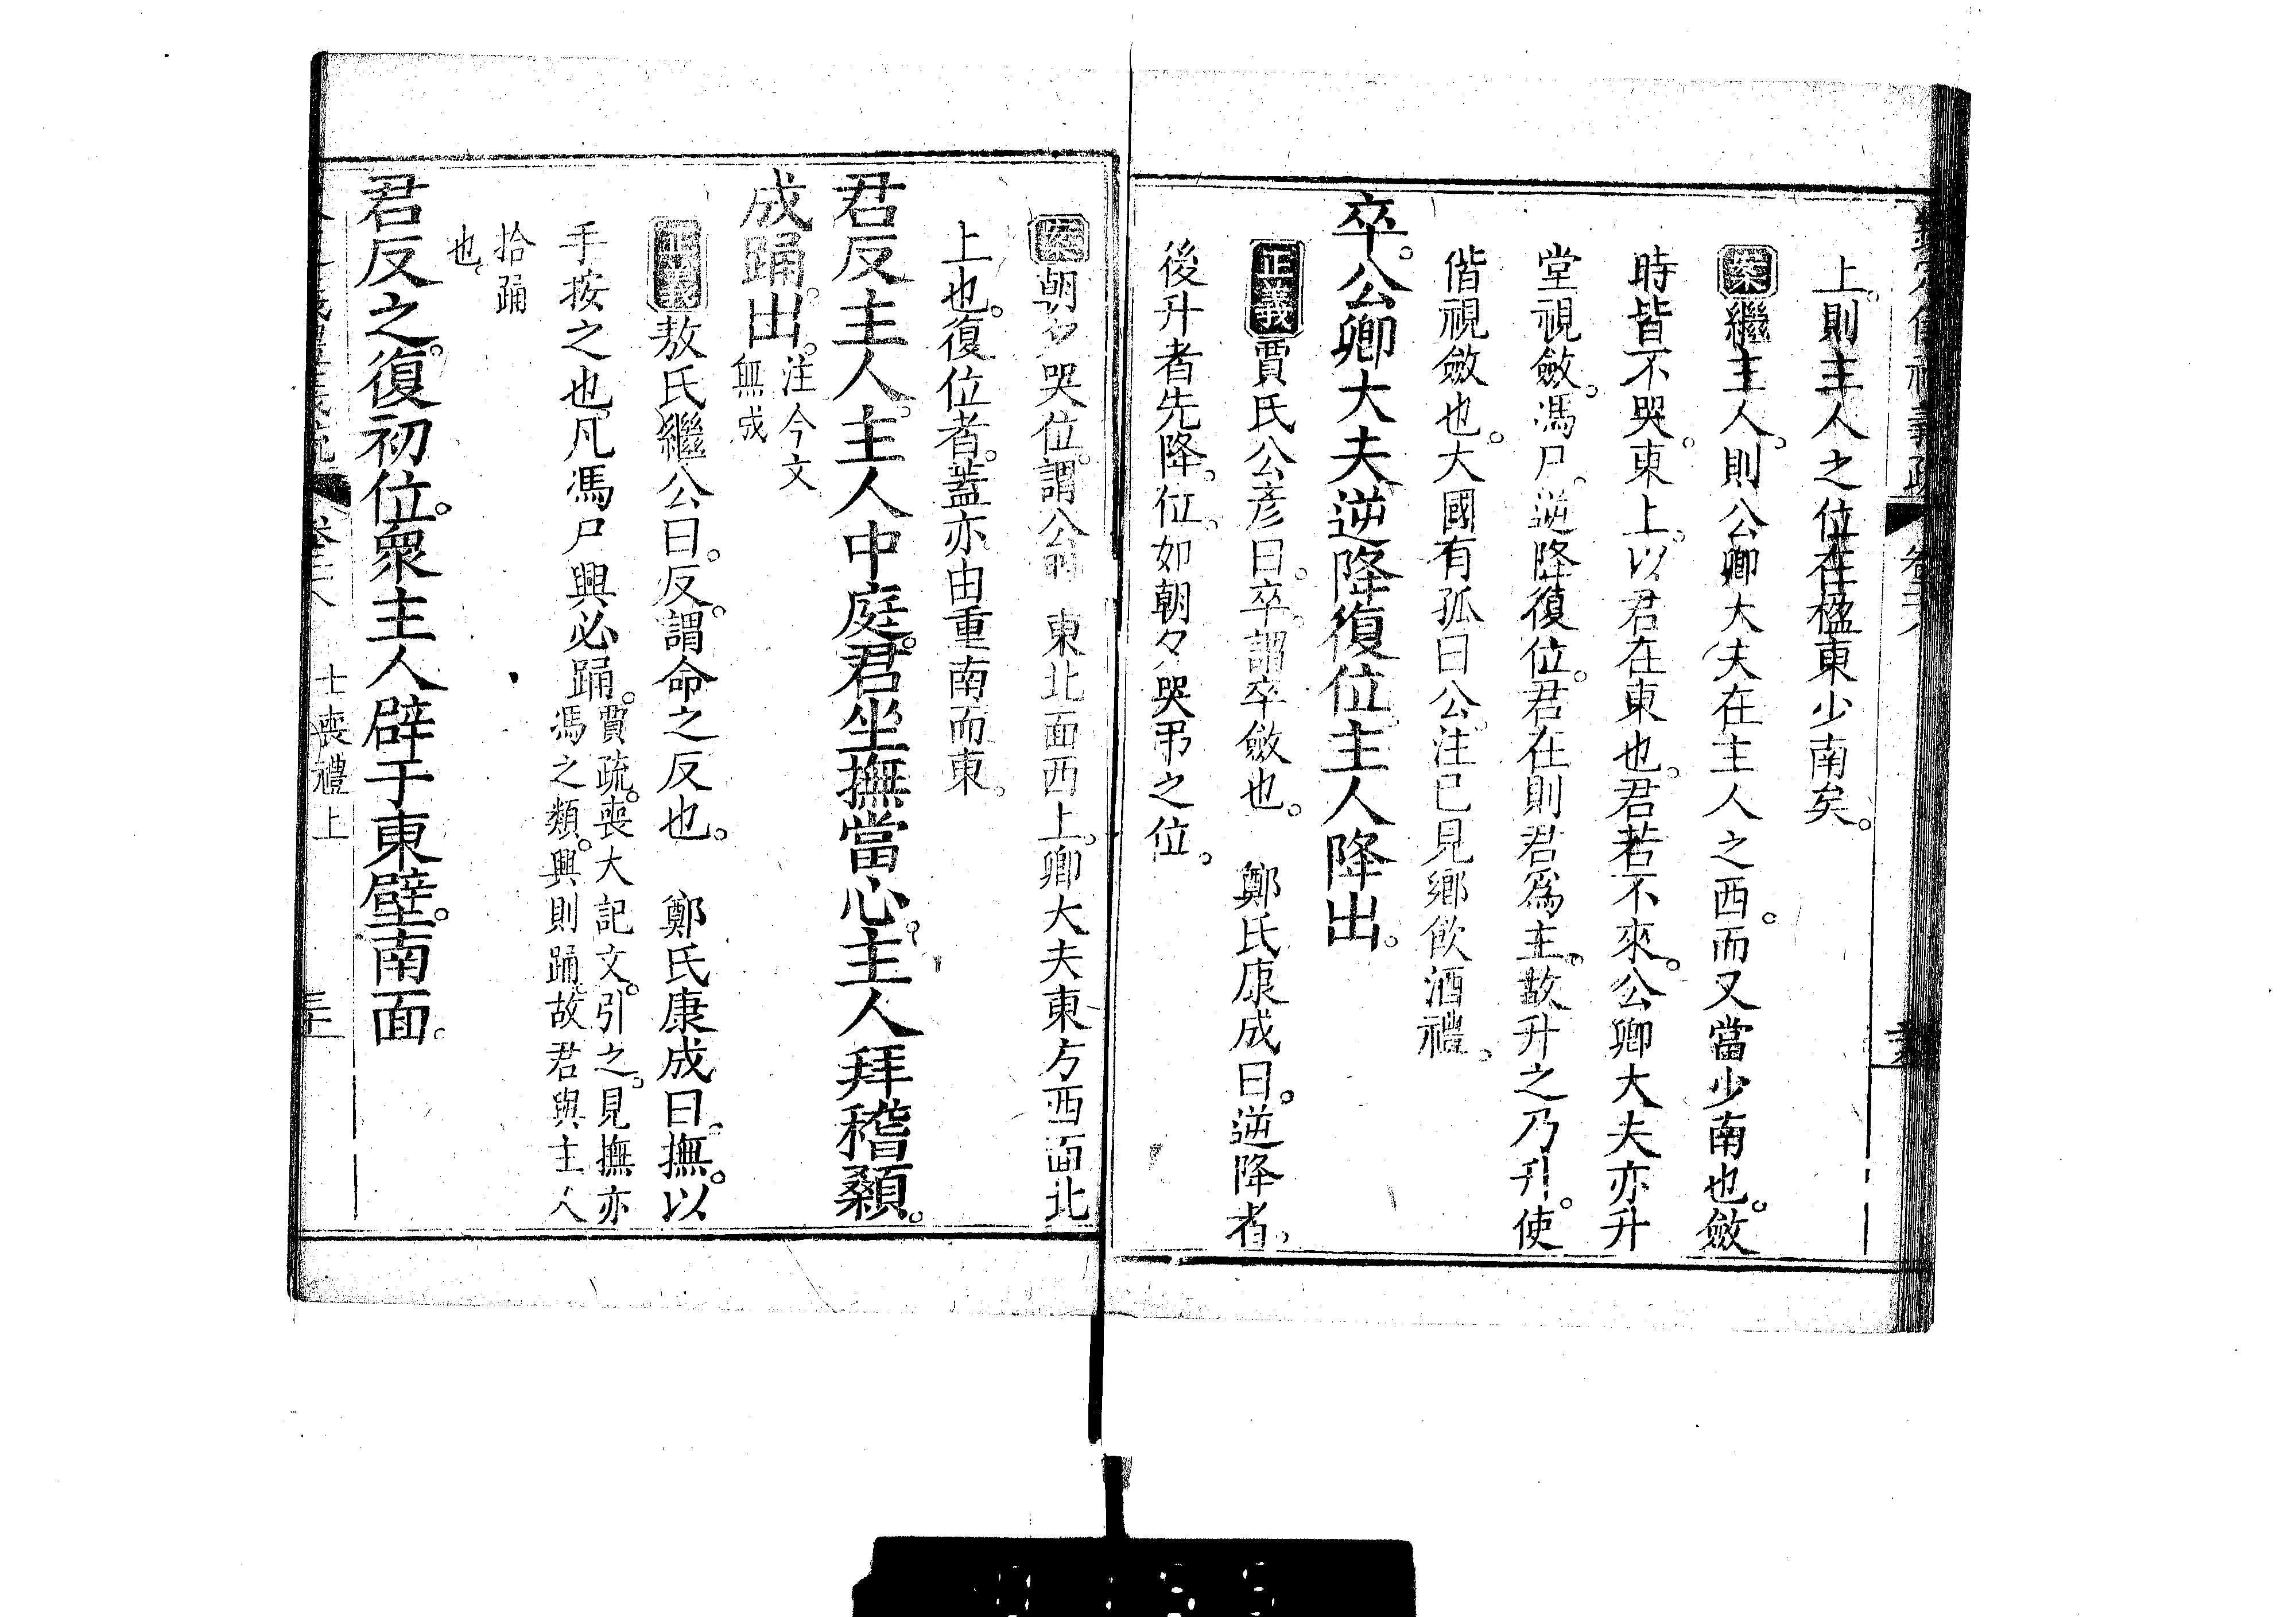 上。則主人之位在楹東少南矣。
案繼主人。則公卿大夫在主人之西。而又當少南也。斂
時皆不哭。東上。以君在東也。君若不來。公卿大夫亦升
堂視斂。馮尸。逆降復位。君在則君為主。故升之乃升。使
偕視斂也。大國有孤曰公。注已見鄉飲酒禮。
卒。公卿大夫逆降復位。主人降出。
正義賈氏公彥曰。卒。謂卒斂也。 鄭氏康成曰。逆降者。
後升者先降。位。如朝夕哭弔之位。
案朝夕哭位。謂公 東北面西上。卿大夫東方西面北
上也。復位者。蓋亦由重南而東。
君反主人。主人中庭。君坐撫當心。主人拜稽顙。
成踊。出。注今文
無成
正義敖氏繼公曰。反。謂命之反也。 鄭氏康成曰。撫。以
手按之也。凡馮尸興必踊。賈疏。喪大記文。引之。見撫亦
馮之類。興則踊。故君與主人
拾踊
也。
君反之。復初位。眾主人辟于東壁。南面。
士喪禮上